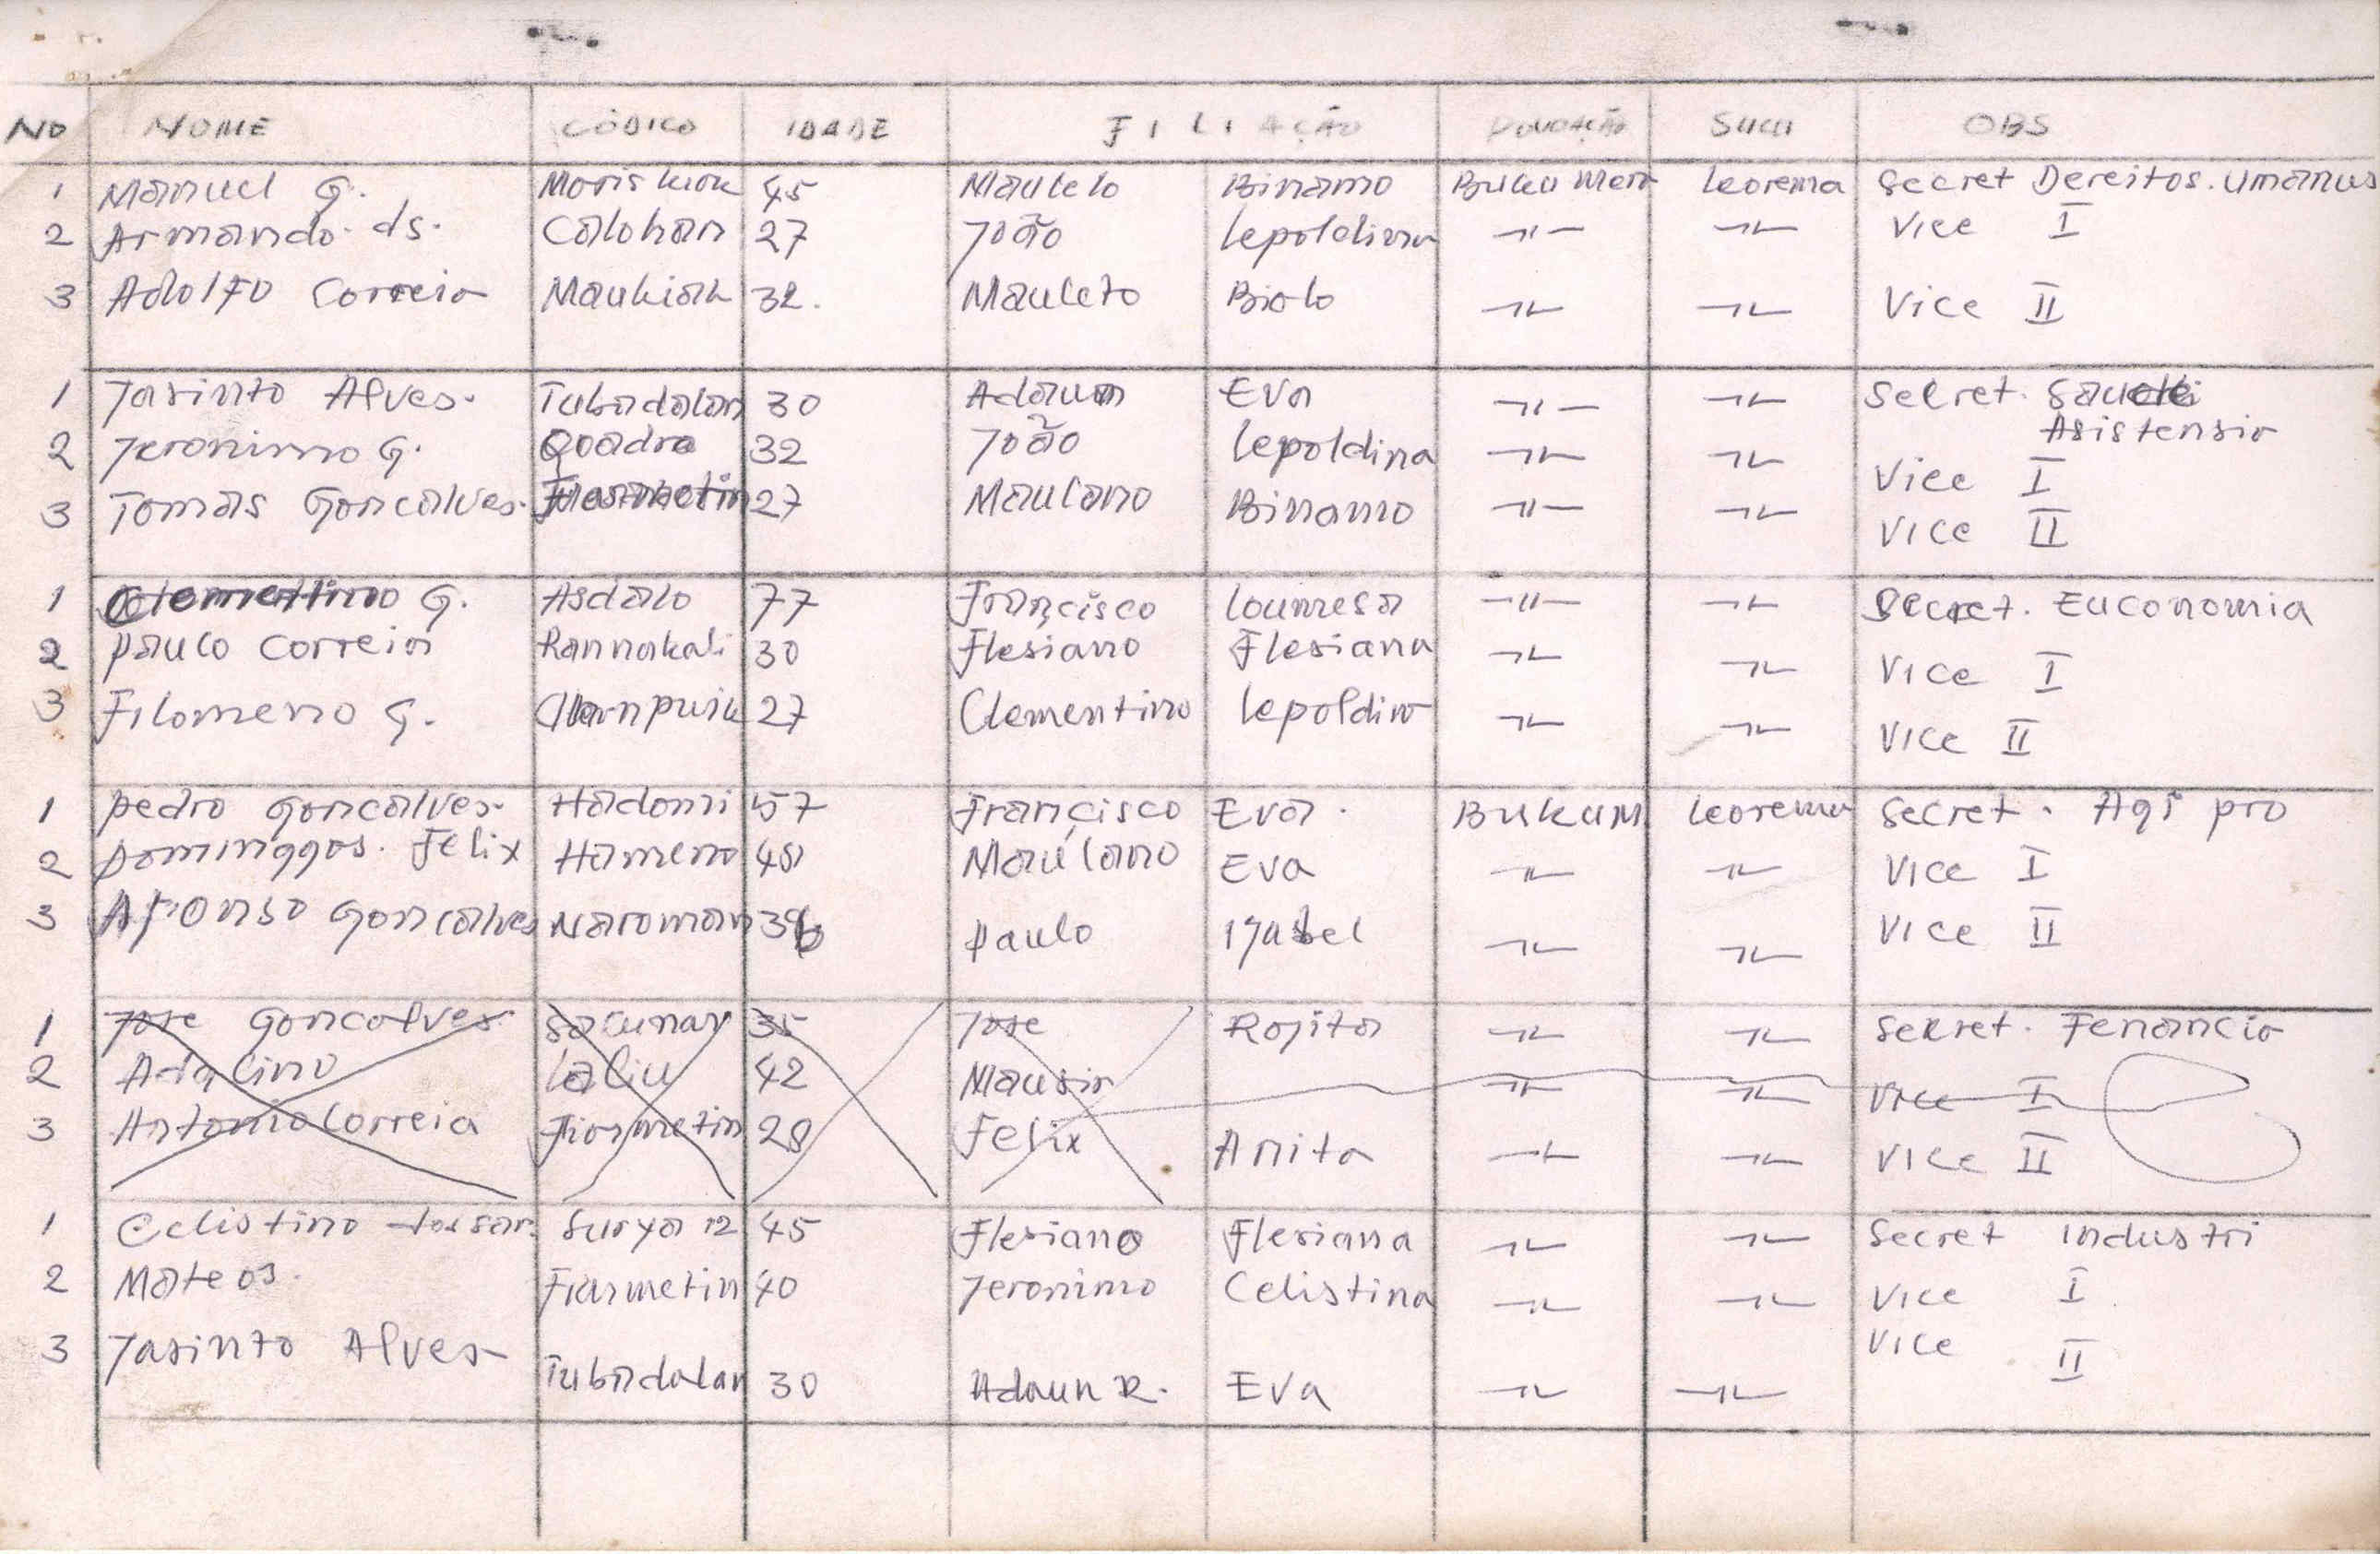 NO NOME CÓDICO IDADE FILIAÇÃO POVOAÇÃO SUCU OBS
1 Manuel G. 45 Maulelo Binamo Buku Mera leorema Secret Dereitos. umanus
2 Armando. ds. Calohan 27 João lepoldina -"- -"- Vice I
3 Adolfo Correia Maukiak 32. Mauleto Biolo -"- -"- Vice II
1 Jasinto Alves. Tubadalan 30 Adaun Eva -"- -"- Secret.
Asistensia
2 Jeronimo G. Quadra 32 João lepoldina -"- -"- Vice I
3 Tomas Goncalves. 27 Maulano Binamo -"- -"- Vice II
1 Clementino G. Asdalo 77 Francisco -"- -"- Secret. Euconomia
2 paulo Correia Rannakali 30 Flesiano Flesiana -"- -"- Vice I
3 Filomeno G. 27 Clementino lepoldin -"- -"- Vice II
1 pedro Goncalves. Hadomi 57 Francisco Eva. BukuM leorema Secret. Agi pro
2 Dominggos. Felix Hameno 48 Maulano Eva -"- -"- Vice I
3 Afonso Goncalves Naroman paulo -"- -"- Vice II
1 Jose Goncalves Sacunar 35 Jose Rojita -"- -"- Secret. Fenancia
2 Adalino Laliu 42 Mausir -"- -"- Vice I
3 Antonio Correia Fiarmetin 28 Felix Anita -"- -"- Vice II
1 Celistino Surya 12 45 Flesiano Flesiana -"- -"- Secret Industri
2 Mateos. Fiarmetin 40 Jeronimo Celistina -"- -"- Vice I
3 Jasinto Alves Tubadalan 30 Adaun R. Eva -"- -"- Vice II